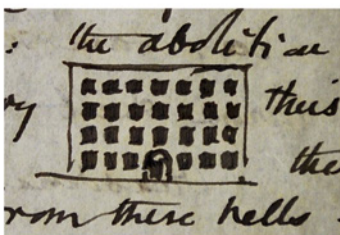 : the abolition
ry this
the
from these hells